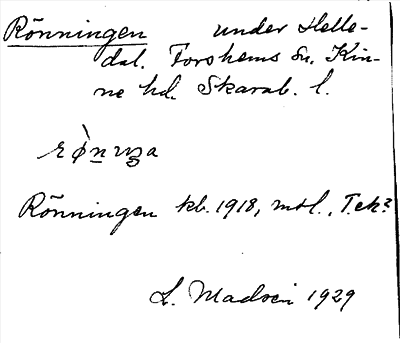 Rönningen under Helle-
dal. Forshems sn. Kin-
ne hd. Skarab. l.
Rönningen kb. 1918, mtl., T.ek?
L. Madsén 1929